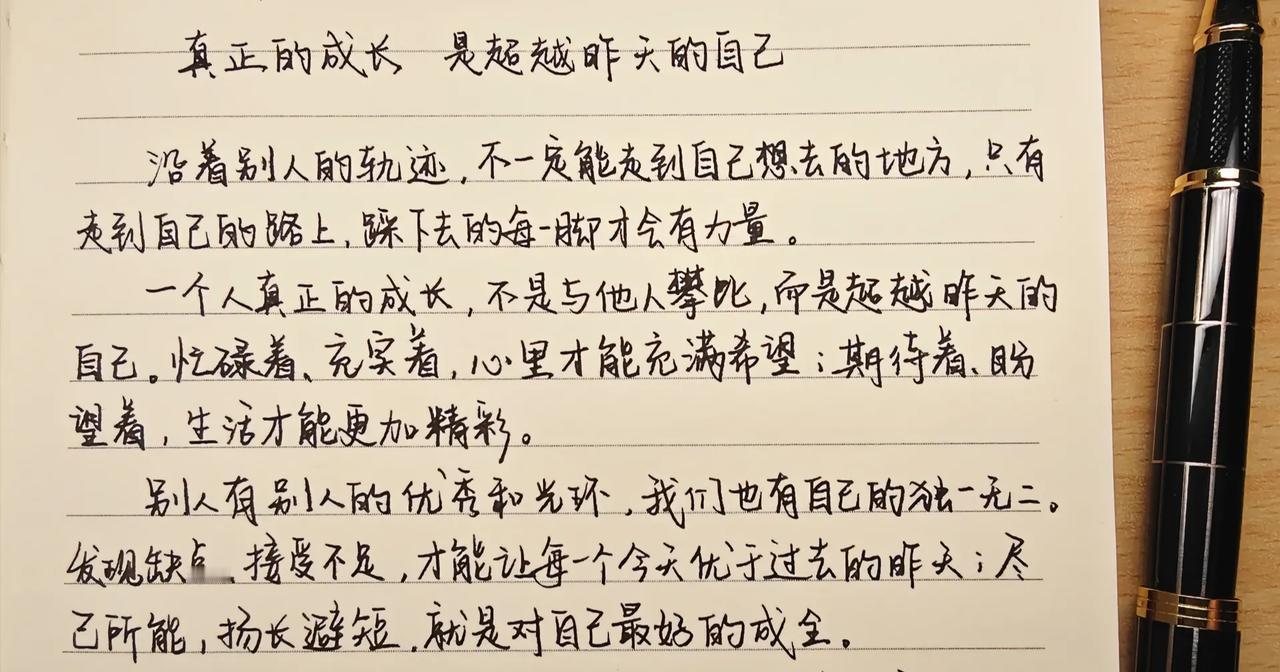 真正的成长 是超越昨天的自己
沿着别人的轨迹,不一定能走到自己想去的地方,只有
走到自己的路上,踩下去的每一脚才会有力量。
一个人真正的成长,不是与他人攀比,而是超越昨天的
自己。忙碌着、充实着,心里才能充满希望;期待着、盼
望着,生活才能更加精彩。
别人有别人的优秀和光环,我们也有自己的独一无二。
发现缺点、接受不足,才能让每一个今天优于过去的昨天;尽
己所能,扬长避短,就是对自己最好的成全。